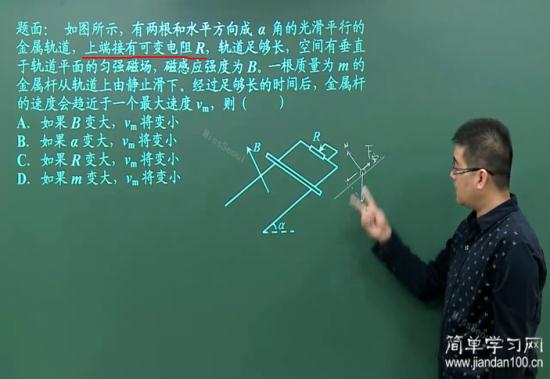 题面： 如图所示，有两根和水平方向成 α 角的光滑平行的
金属轨道，上端接有可变电阻 R，轨道足够长，空间有垂直
于轨道平面的匀强磁场，磁感应强度为 B、一根质量为 m 的
金属杆从轨道上由静止滑下。经过足够长的时间后，金属杆
的速度会趋近于一个最大速度 vm，则（ ）
A. 如果 B 变大，vm 将变小
B. 如果 α 变大，vm 将变小
C. 如果 R 变大，vm 将变小
D. 如果 m 变大，vm 将变小
B
R
α
N
F安
简单学习网
www.jiandan100.cn